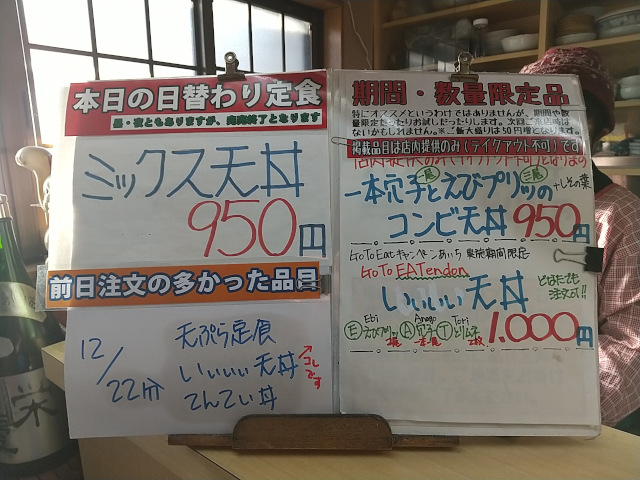 本日の日替わり定食
昼・夜ともありますが、完売終了となります
ミックス天丼
950円
前日注文の多かった品目
12/22分
天ぷら定食
いいいい天丼
てんてい丼
↑コレです
期間・数量限定品
特にオススメというわけではありませんが、期間や数
量限定だったりお試しだったりします。次回ご来店時は
ないかもしれません。※ご飯大盛りは50円増となります。
掲載品目は店内提供のみ(テイクアウト不可)です
一本穴子とえびプリッの
一尾
三尾
+しその葉
コンビ天丼 950円
GoToEatキャンペーンあいち 実施期間限定
GoTo EATendon
いいいい天丼
どなたでも
注文可!!
Ebi
Anago
Tori
Ⓔえびプリッ Ⓐ穴子 Ⓣとりムネ
1.000円
栄